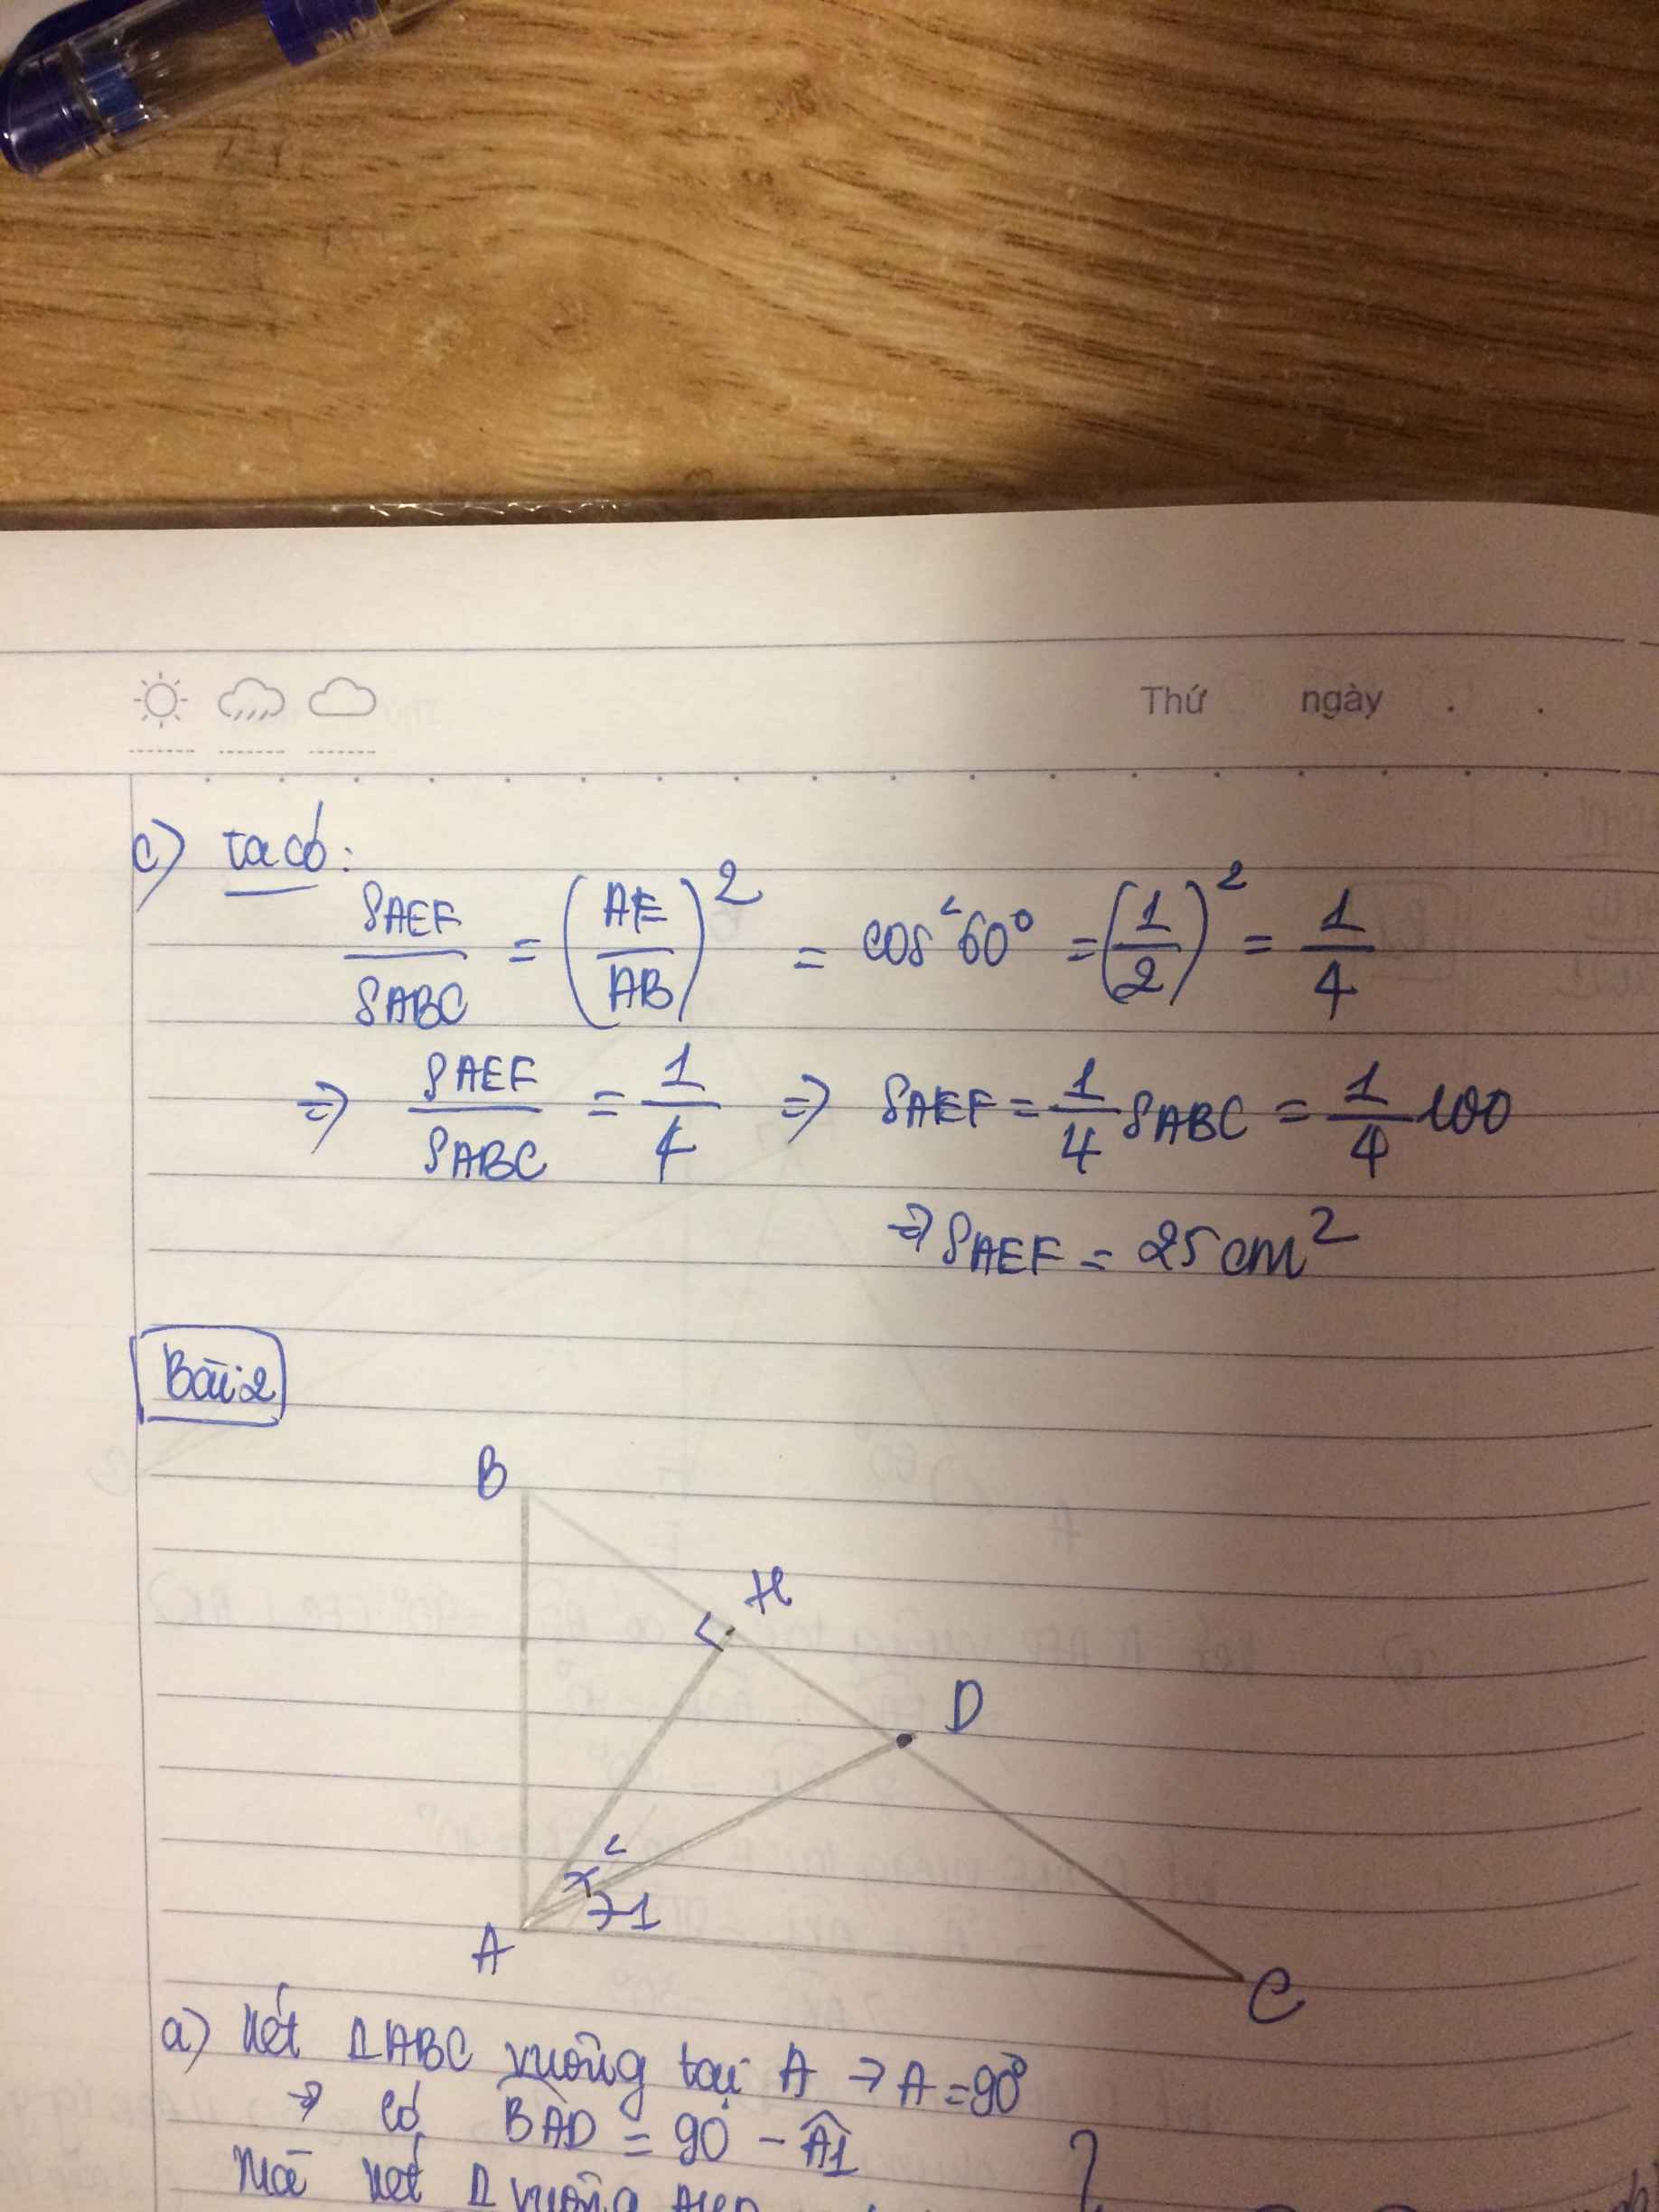 Thứ ngày . .
c) ta có:
SAEF / SABC = (AE / AB)² = cos²60° = (1/2)² = 1/4
⇒ SAEF / SABC = 1/4 ⇒ SAEF = 1/4 SABC = 1/4 100
⇒ SAEF = 25 cm²
Bài 2
B
H
D
2
1
A
C
a) Xét ΔABC vuông tại A → A = 90°
→ Có BAD = 90° - Â1
Mà xét Δ vuông